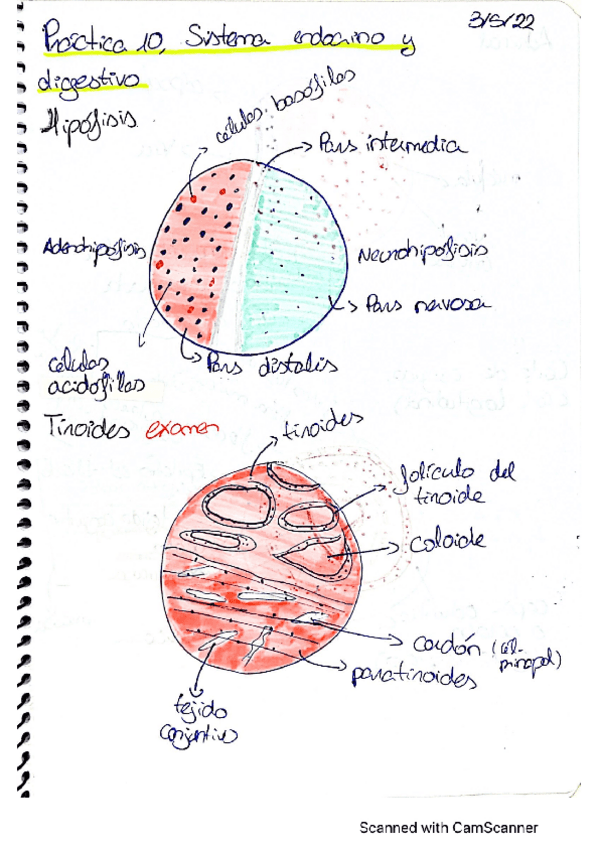 3/5/22
Práctica 10, Sistema endocrino y
digestivo
Hipófisis
células basófilas
Pars intermedia
Adenohipófisis
Neurohipófisis
Pars nervosa
células
acidófilas
Pars distalis
Tiroides examen
tiroides
folículo del
tiroide
coloide
cordón (cél.
principal)
paratiroides
tejido
conjuntivo
Scanned with CamScanner